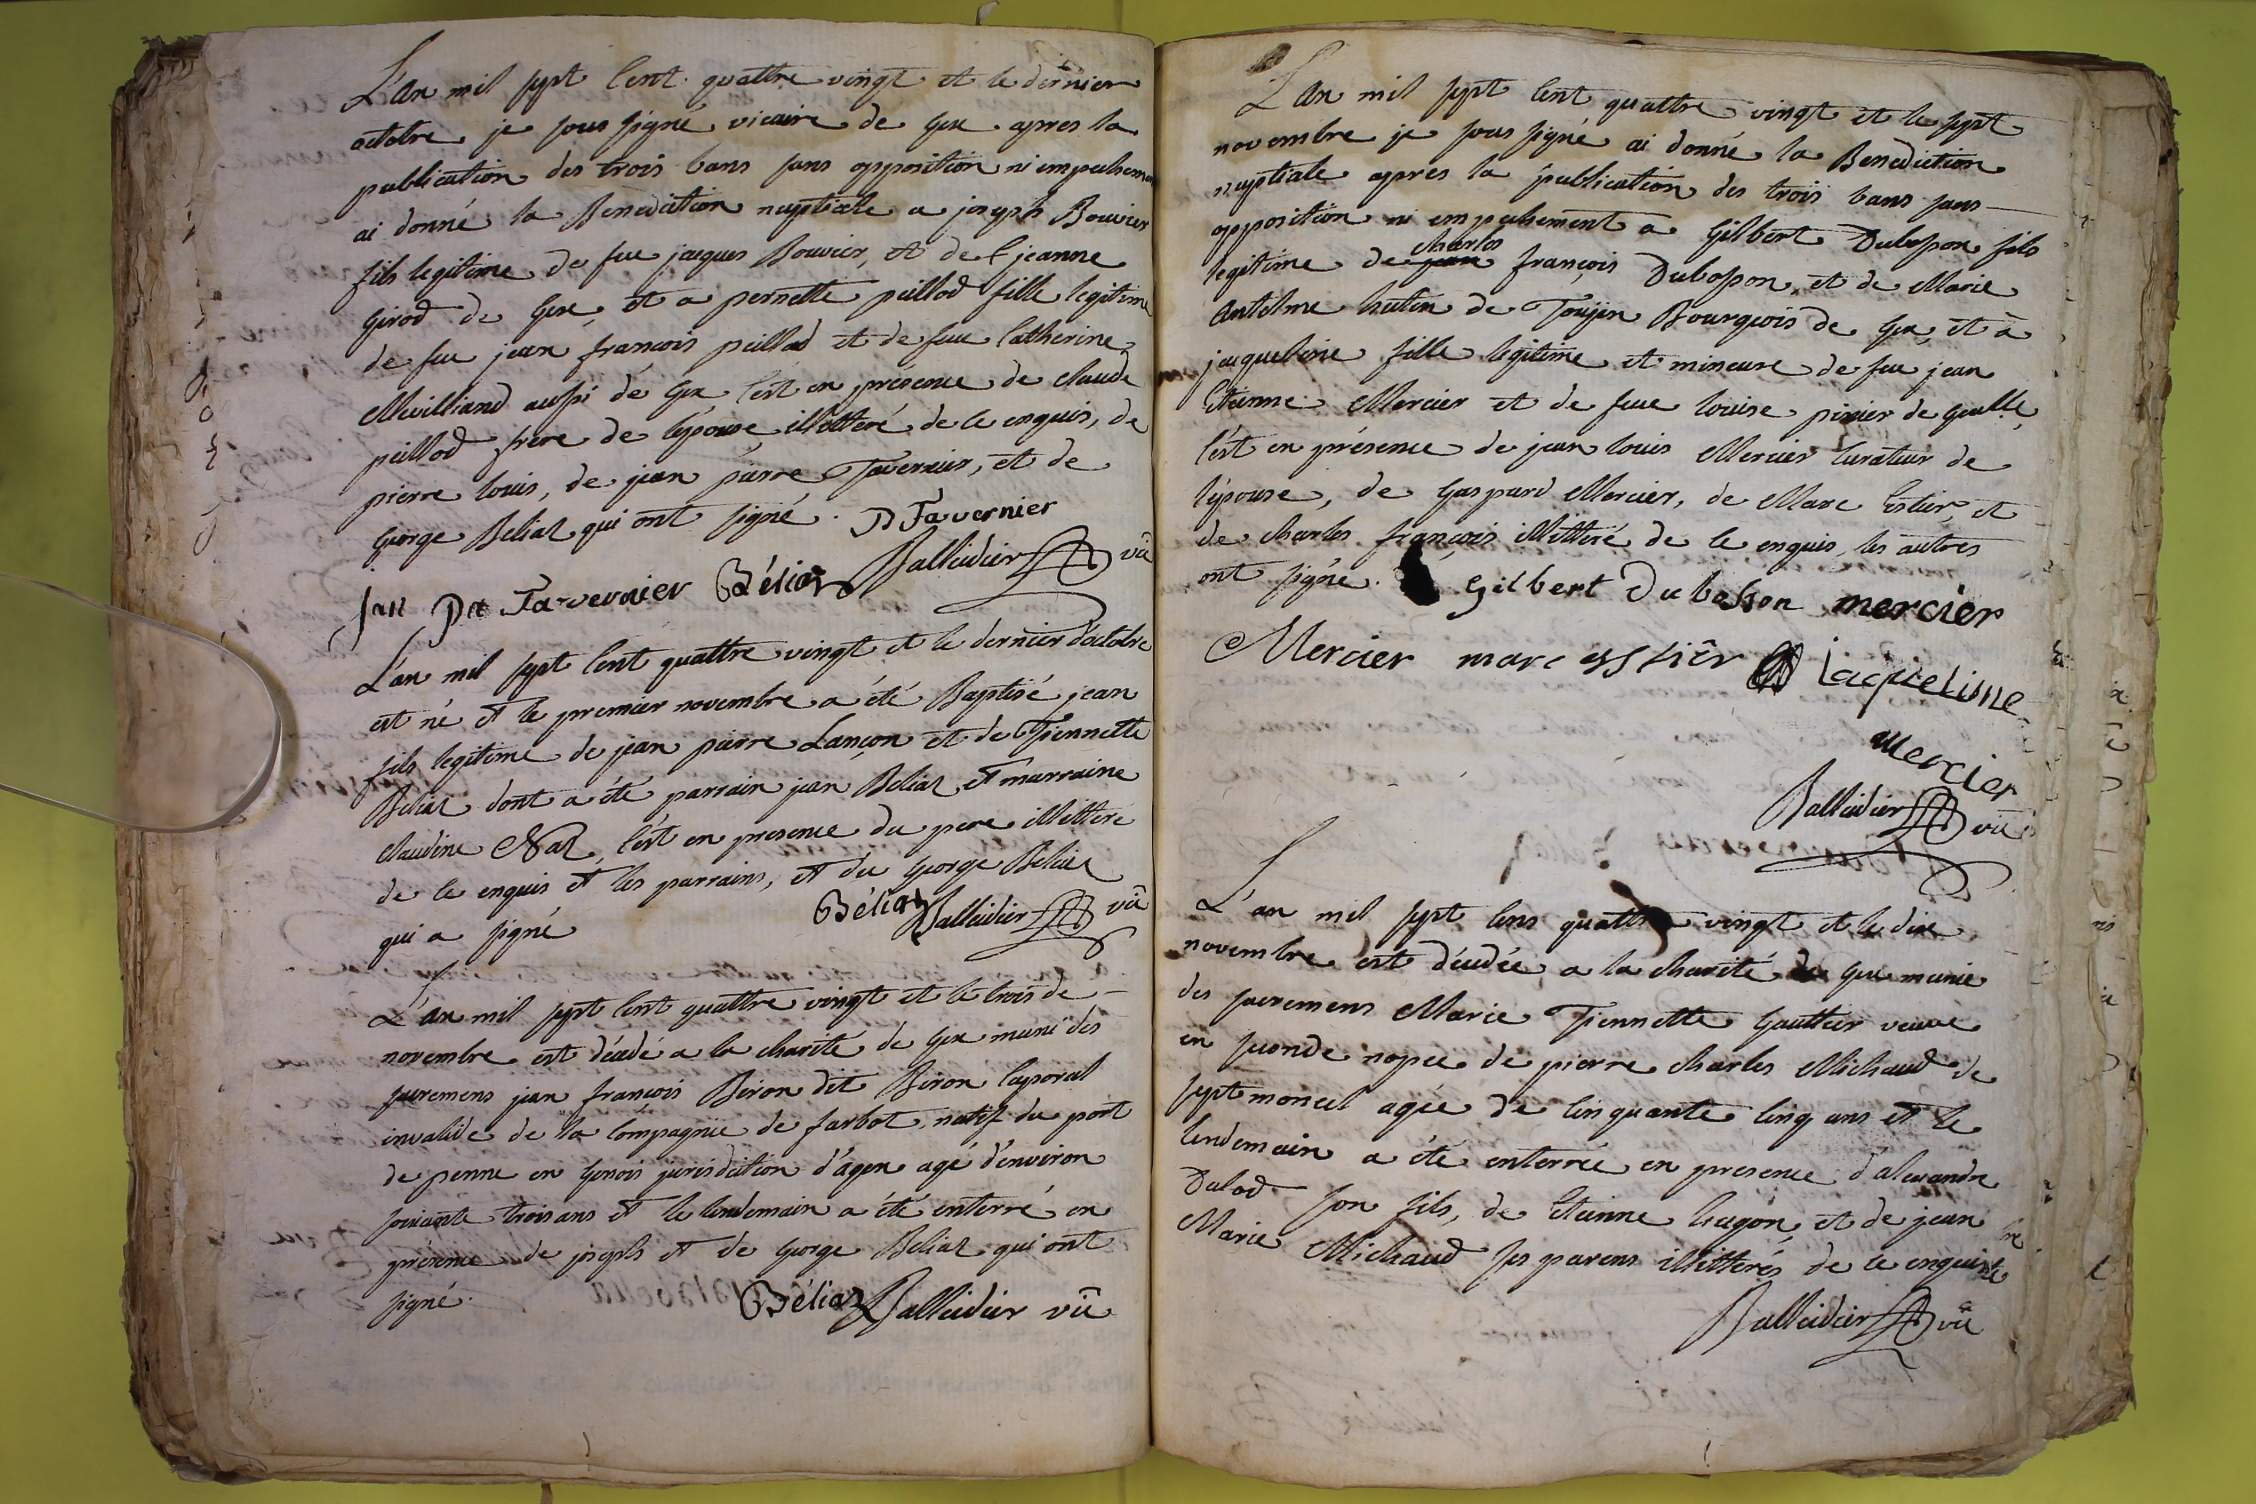 L'an mil sept Cent quattre vingt et le dernier
octobre je sous signé vicaire de Gex apres la
publication des trois bans sans opposition ni empechement
ai donné la Benediction nuptiale a joseph Bouvier
fils legitime de feu jacques Bouvier, et de jeanne
Girod de Gex, et a pernette peillod fille legitime
de feu jean françois peillod et de feue Catherine
Mevilliand aussi de Gex C'est en présence de claude
peillod frere de l'épouse illettéré de ce enquis, de
pierre louis, de jean pierre Tavernier, et de
George Beliaz qui ont signé. P Tavernier
jan Pre Tavernier Béliaz Balleidier vû
L'an mil sept Cent quattre vingt et le dernier d'octobre
est né et le premier novembre a été Baptisé jean
fils legitime de jean pierre Lançon et de Tiennette
Beliaz dont a été parrain jean Beliaz et marraine
claudine Naz, C'est en presence du pere illettere
de ce enquis et les parrains, et du George Beliaz
qui a signé Béliaz Balleidier vû
L'an mil sept Cent quattre vingt et le trois de
novembre est décédé a la charité de Gex muni des
sacremens jean françois Biron dit Biron Caporal
invalide de la Compagnie de farbot, natif du port
de penne en Genois jurisdiction d'agen agé d'environ
soixante trois ans et le lendemain a été enterré en
présence de joseph et de George Beliaz qui ont
signé. Béliaz Balleidier vû
L'an mil sept Cent quattre vingt et le sept
novembre je sous signé ai donné la Benediction
nuptiale apres la publication des trois bans sans
opposition ni empechement a Gilbert Dubosson fils
legitime de charles françois Dubosson, et de Marie
Antelme hutin de Toujin Bourgeois de Gex, et à
jacqueline fille legitime et mineure de feu jean
Etienne Mercier et de feue louise pinier de Gentle,
C'est en présence de jean louis Mercier Curateur de
l'épouse, de Gaspard Mercier, de Marc Estier, et
de charles françois illettéré de ce enquis, les autres
ont signé. Gilbert Dubosson mercier
Mercier marc esstier Jaquelinne
Mercier
Balleidier vû
L'an mil sept Cens quattre vingt et le dix
novembre est décédée a la charité de Gex munie
des sacremens Marie Tiennette Gauttier veuve
en seconde nopce de pierre charles Michaud de
septmoncel agée de Cinquante Cinq ans et le
lendemain a été enterrée en presence d'alexandre
Dalod son fils, de Etienne hugon, et de jean
Marie Michaud ses parens illettérés de ce enquis
Balleidier vû